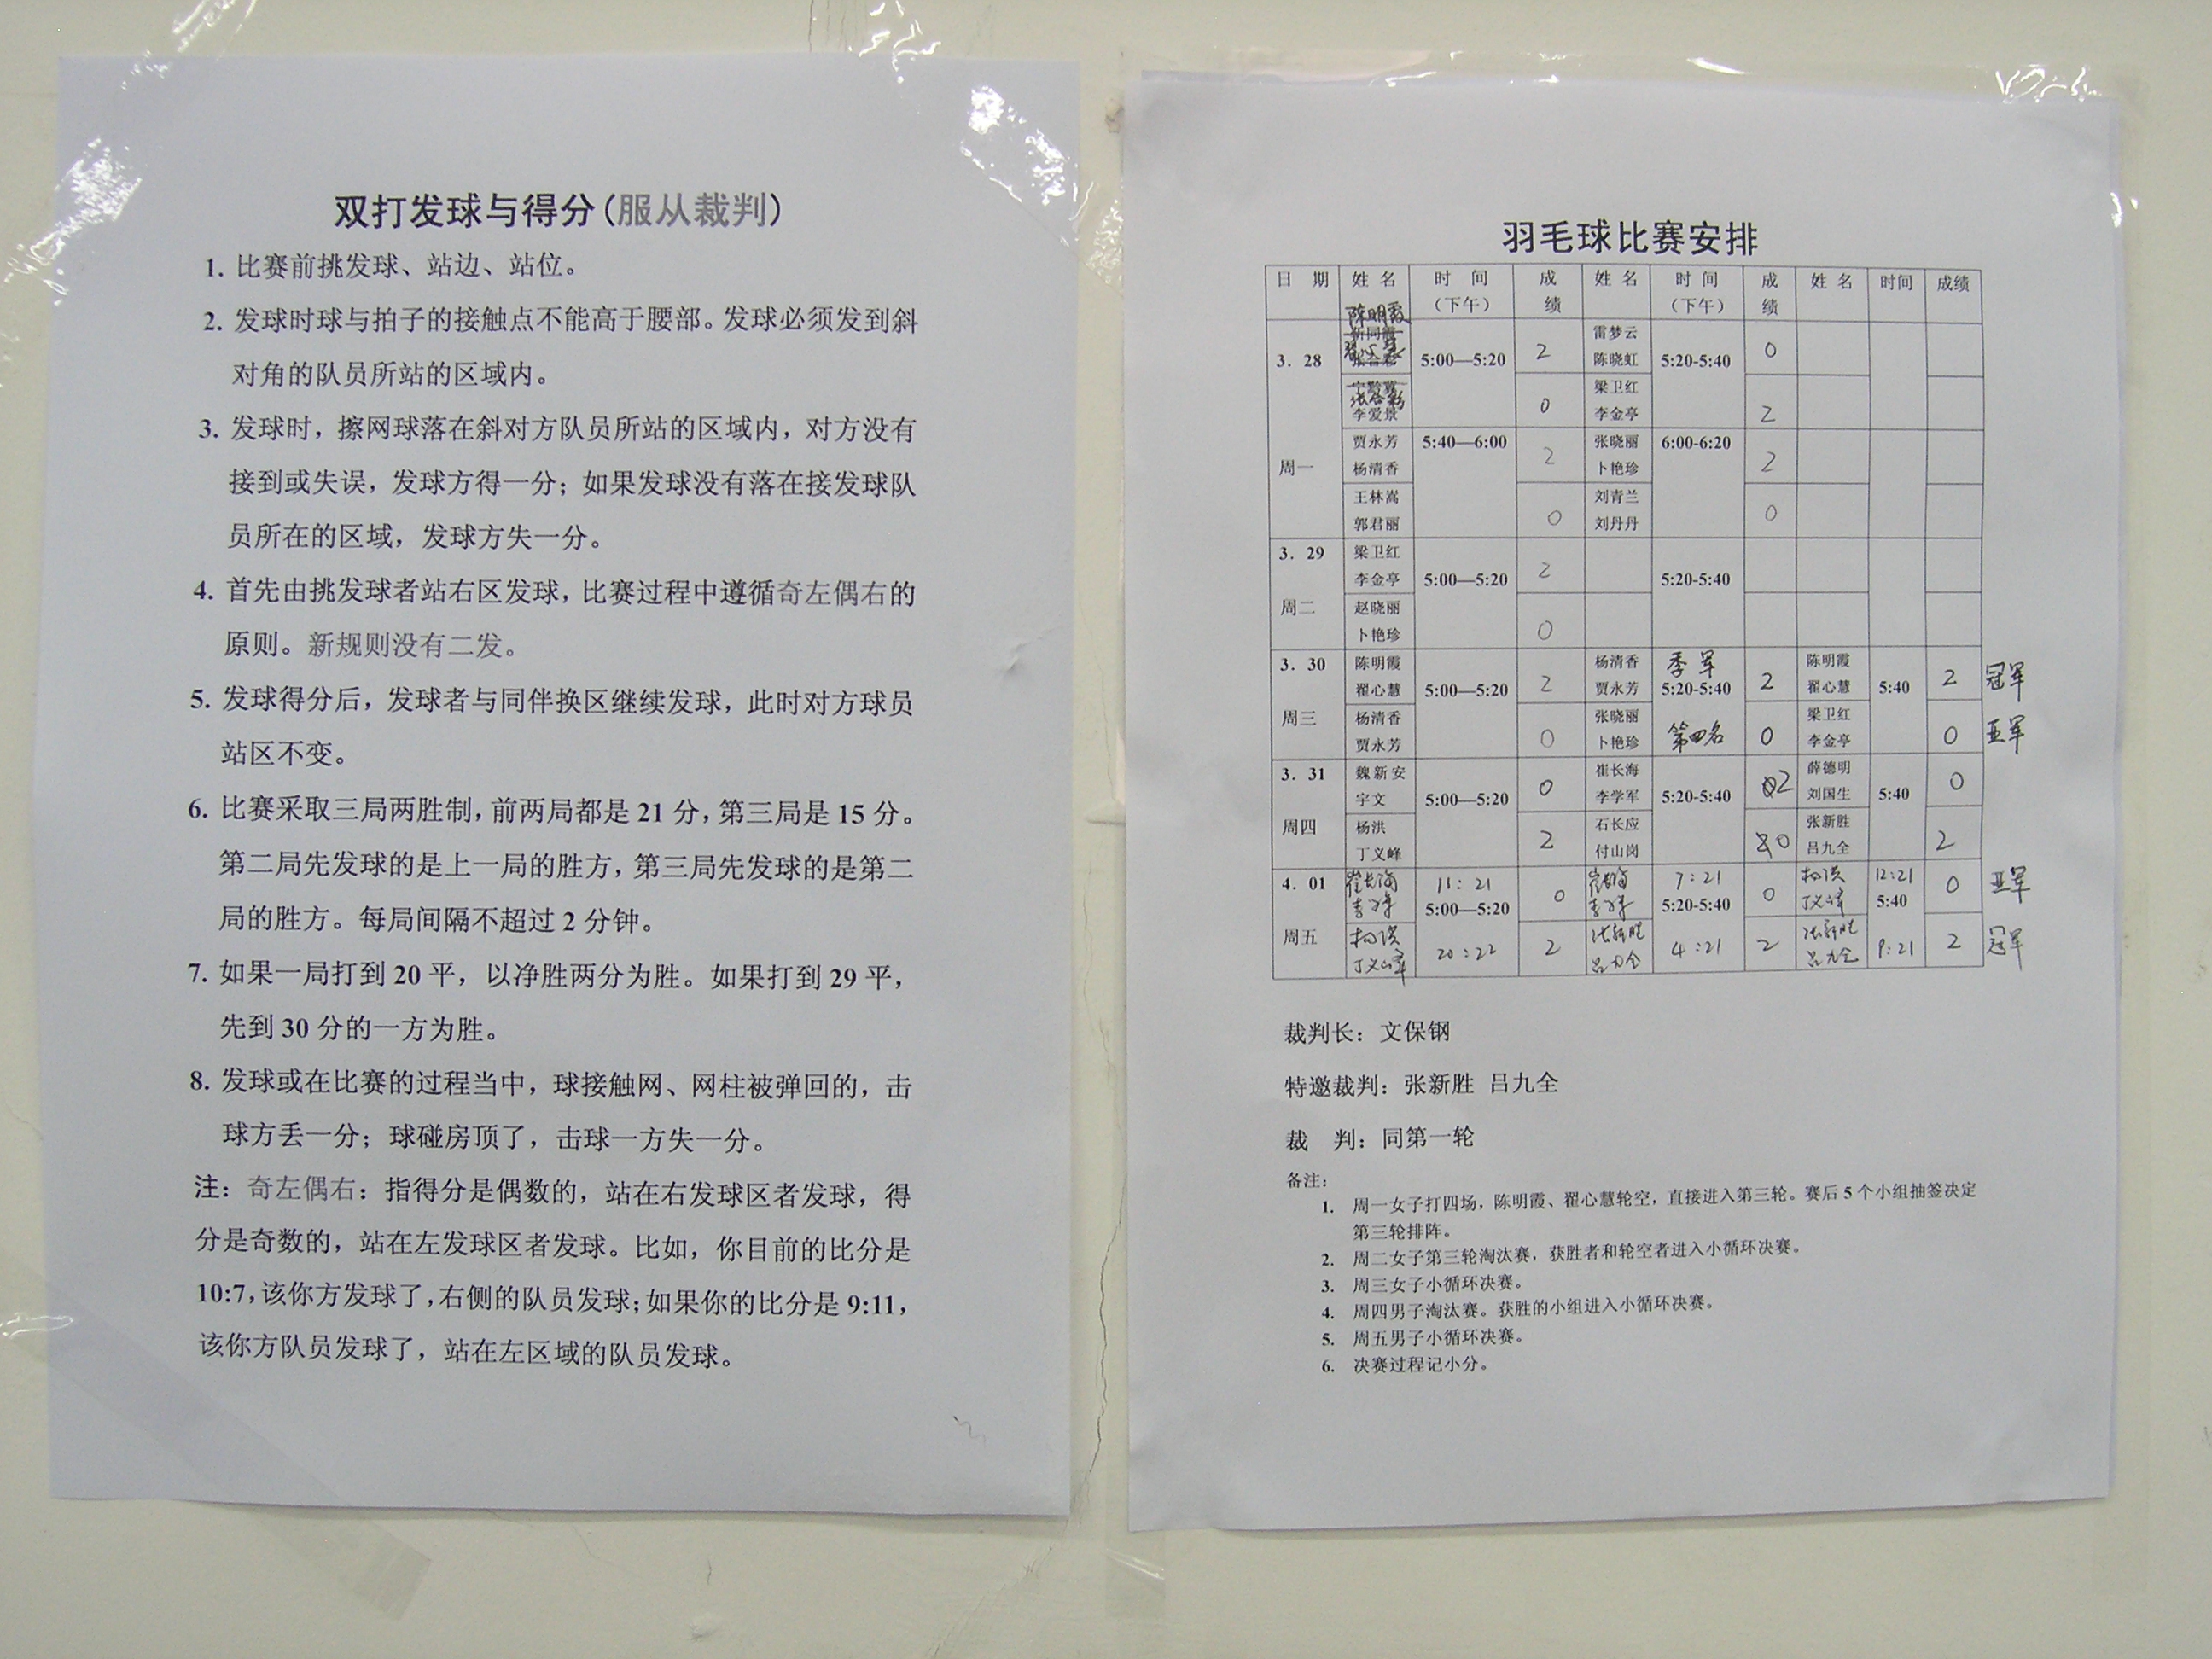 双打发球与得分(服从裁判)
1. 比赛前挑发球、站边、站位。
2. 发球时球与拍子的接触点不能高于腰部。发球必须发到斜
对角的队员所站的区域内。
3. 发球时，擦网球落在斜对方队员所站的区域内，对方没有
接到或失误，发球方得一分；如果发球没有落在接发球队
员所在的区域，发球方失一分。
4. 首先由挑发球者站右区发球，比赛过程中遵循奇左偶右的
原则。新规则没有二发。
5. 发球得分后，发球者与同伴换区继续发球，此时对方球员
站区不变。
6. 比赛采取三局两胜制，前两局都是 21 分，第三局是 15 分。
第二局先发球的是上一局的胜方，第三局先发球的是第二
局的胜方。每局间隔不超过 2 分钟。
7. 如果一局打到 20 平，以净胜两分为胜。如果打到 29 平，
先到 30 分的一方为胜。
8. 发球或在比赛的过程当中，球接触网、网柱被弹回的，击
球方丢一分；球碰房顶了，击球一方失一分。
注：奇左偶右：指得分是偶数的，站在右发球区者发球，得
分是奇数的，站在左发球区者发球。比如，你目前的比分是
10:7，该你方发球了，右侧的队员发球；如果你的比分是 9:11，
该你方队员发球了，站在左区域的队员发球。
羽毛球比赛安排
日 期 姓 名 时 间 成 姓 名 时 间 成 姓 名 时间 成绩
（下午） 绩 （下午） 绩
陈明霞
雷梦云
3. 28 5:00—5:20 2 陈晓虹 5:20-5:40 0
梁卫红
李爱景 0 李金亭 2
贾永芳 5:40—6:00 2 张晓丽 6:00-6:20 2
周一 杨清香 卜艳珍
王林嵩 刘青兰
郭君丽 0 刘丹丹 0
3. 29 梁卫红
李金亭 5:00—5:20 2 5:20-5:40
周二 赵晓丽
卜艳珍 0
3. 30 陈明霞 杨清香 季军 陈明霞
翟心慧 5:00—5:20 2 贾永芳 5:20-5:40 2 翟心慧 5:40 2 冠军
周三 杨清香 张晓丽 梁卫红
贾永芳 0 卜艳珍 第四名 0 李金亭 0 亚军
3. 31 魏新安 崔长海 薛德明
宇文 5:00—5:20 0 李学军 5:20-5:40 2 刘国生 5:40 0
周四 杨洪 石长应 张新胜
丁义峰 2 付山岗 0 吕九全 2
4. 01 崔长海 11:21 崔长海 7:21 杨洪 12:21
李学军 5:00—5:20 0 李学军 5:20-5:40 0 丁义峰 5:40 0 亚军
周五 杨洪 张新胜 张新胜
丁义峰 20:22 2 吕九全 4:21 2 吕九全 9:21 2 冠军
裁判长：文保钢
特邀裁判：张新胜 吕九全
裁 判：同第一轮
备注：
1. 周一女子打四场，陈明霞、翟心慧轮空，直接进入第三轮。赛后 5 个小组抽签决定
第三轮排阵。
2. 周二女子第三轮淘汰赛，获胜者和轮空者进入小循环决赛。
3. 周三女子小循环决赛。
4. 周四男子淘汰赛。获胜的小组进入小循环决赛。
5. 周五男子小循环决赛。
6. 决赛过程记小分。